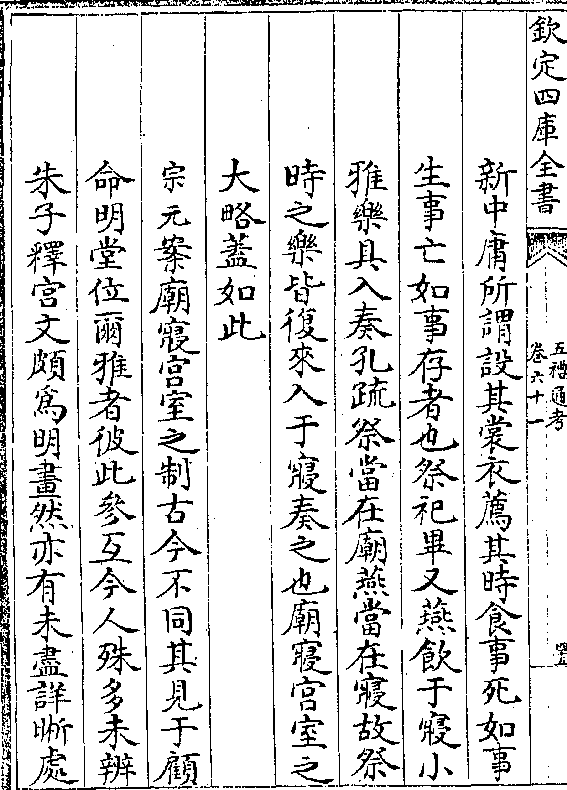 欽定四庫全書
五禮通考
卷六十一
新中庸所謂設其裳衣薦其時食事死如事
生事亡如事存者也祭祀畢又燕飲于寢小
雅樂具入奏孔疏祭當在廟燕當在寢故祭
時之樂皆復來入于寢奏之也廟寢宮室之
大略蓋如此
宗元案廟寢宮室之制古今不同其見于顧
命明堂位爾雅者彼此參互今人殊多未辨
朱子釋宮文頗為明晝然亦有未盡詳晰處